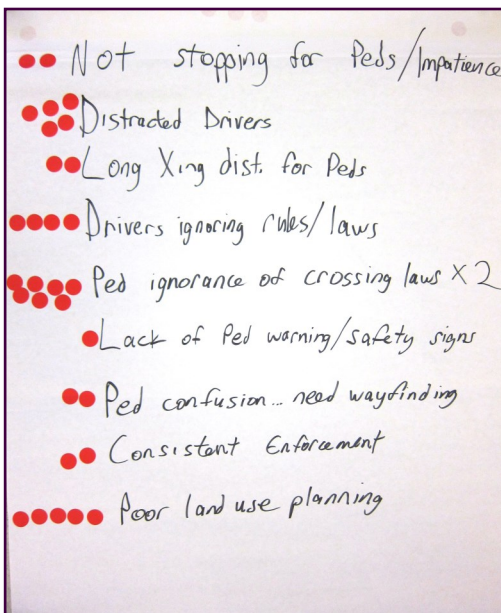 Not stopping for Peds/Impatience
Distracted Drivers
Long Xing dist. for Peds
Drivers ignoring rules/laws
Ped ignorance of crossing laws X2
Lack of Ped warning/safety signs
Ped confusion... need wayfinding
Consistent Enforcement
Poor land use planning